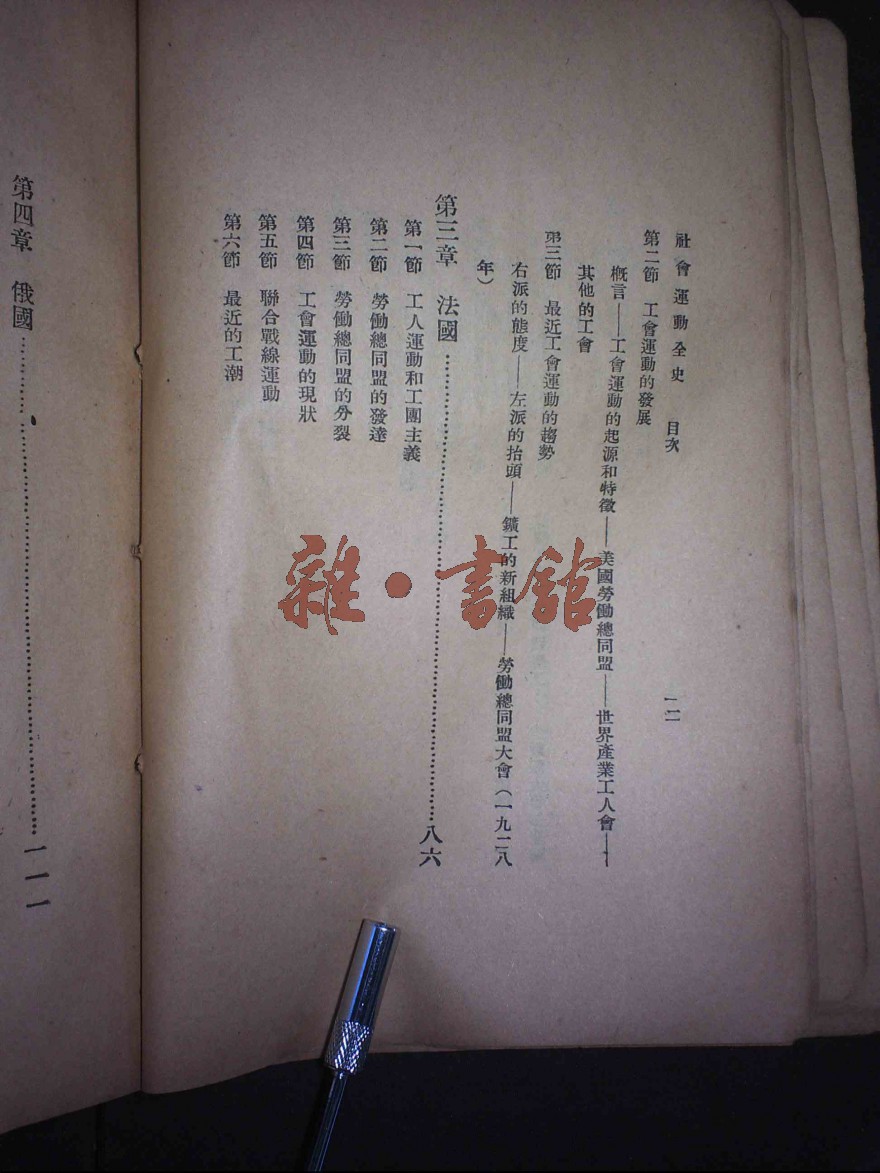 社會運動全史　目次　一二
第二節　工會運動的發展
概言——工會運動的起源和特徵——美國勞働總同盟——世界產業工人會——
其他的工會
第三節　最近工會運動的趨勢
右派的態度——左派的抬頭——鑛工的新組織——勞働總同盟大會（一九二八
年）
第三章　法國……八六
第一節　工人運動和工團主義
第二節　勞働總同盟的發達
第三節　勞働總同盟的分裂
第四節　工會運動的現狀
第五節　聯合戰線運動
第六節　最近的工潮
第四章　俄國……一一一
雜·書館